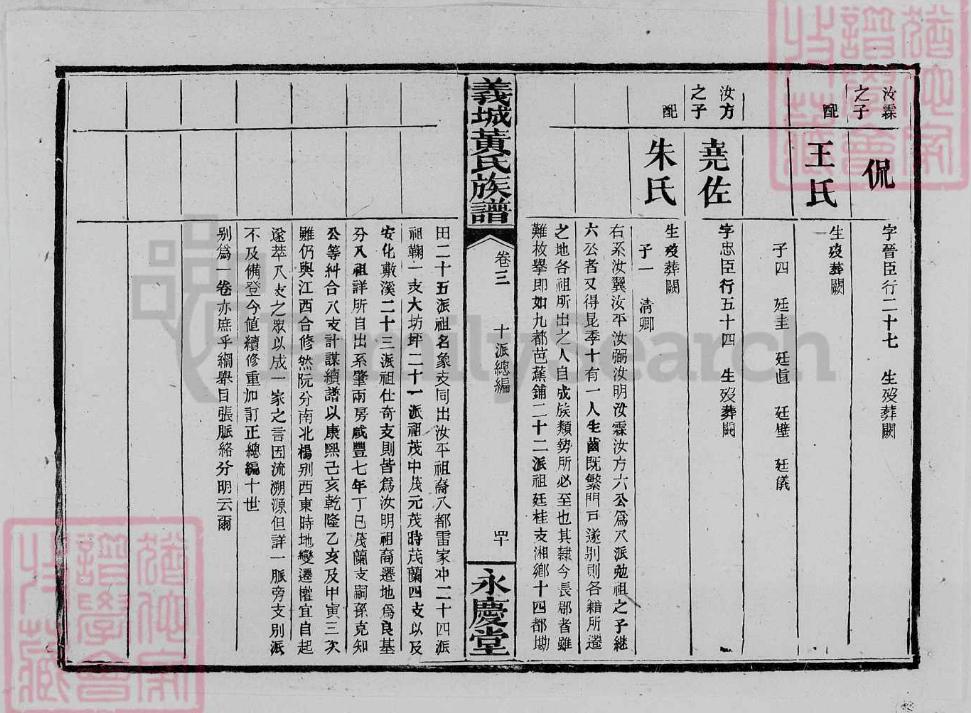 泠霖之子
侃
字晉臣行二十七 生歿葬闕
配
王氏
生歿葬闕
子四 廷圭 廷眞 廷璧 廷儀
汝方之子
堯佐
字忠臣行五十四 生歿葬闕
配
朱氏
生歿葬闕
子一 清卿
右系汝翼汝平汝弼汝明汝霖汝方六公爲八派勉祖之子繼
六公者又得昆季十有一人生齒既繁門戸遂別則各籍所遷
之地各祖所出之人自成族類勢所必至也其隸今長郡者雖
難枚擧即如九都芭蕉鋪二十二派祖廷桂支湘鄉十四都坳
義城黃氏族譜
卷三
十派總編
四十
永慶堂
田二十五派祖名象支同出汝平祖裔八都雷家冲二十四派
祖鞠一支大坊坪二十一派祖茂中茂元茂時茂蘭四支以及
安化敷溪二十三派祖仕奇支則皆爲汝明祖裔遷地爲良基
分八祖詳所自出系肇兩房咸豐七年丁巳茂蘭支嗣孫克知
公等糾合八支計謀續譜以康熙己亥乾隆乙亥及甲寅三次
雖仍與江西合修然阮分南北楊別西東時地變遷權宜自起
遂萃八支之眾以成一家之言因流溯源但詳一脈旁支別派
不及備登今値續修重加訂正總編十世
別爲一卷亦庶乎綱擧目張脈絡分明云爾
FamilySearch
譜學會
收藏